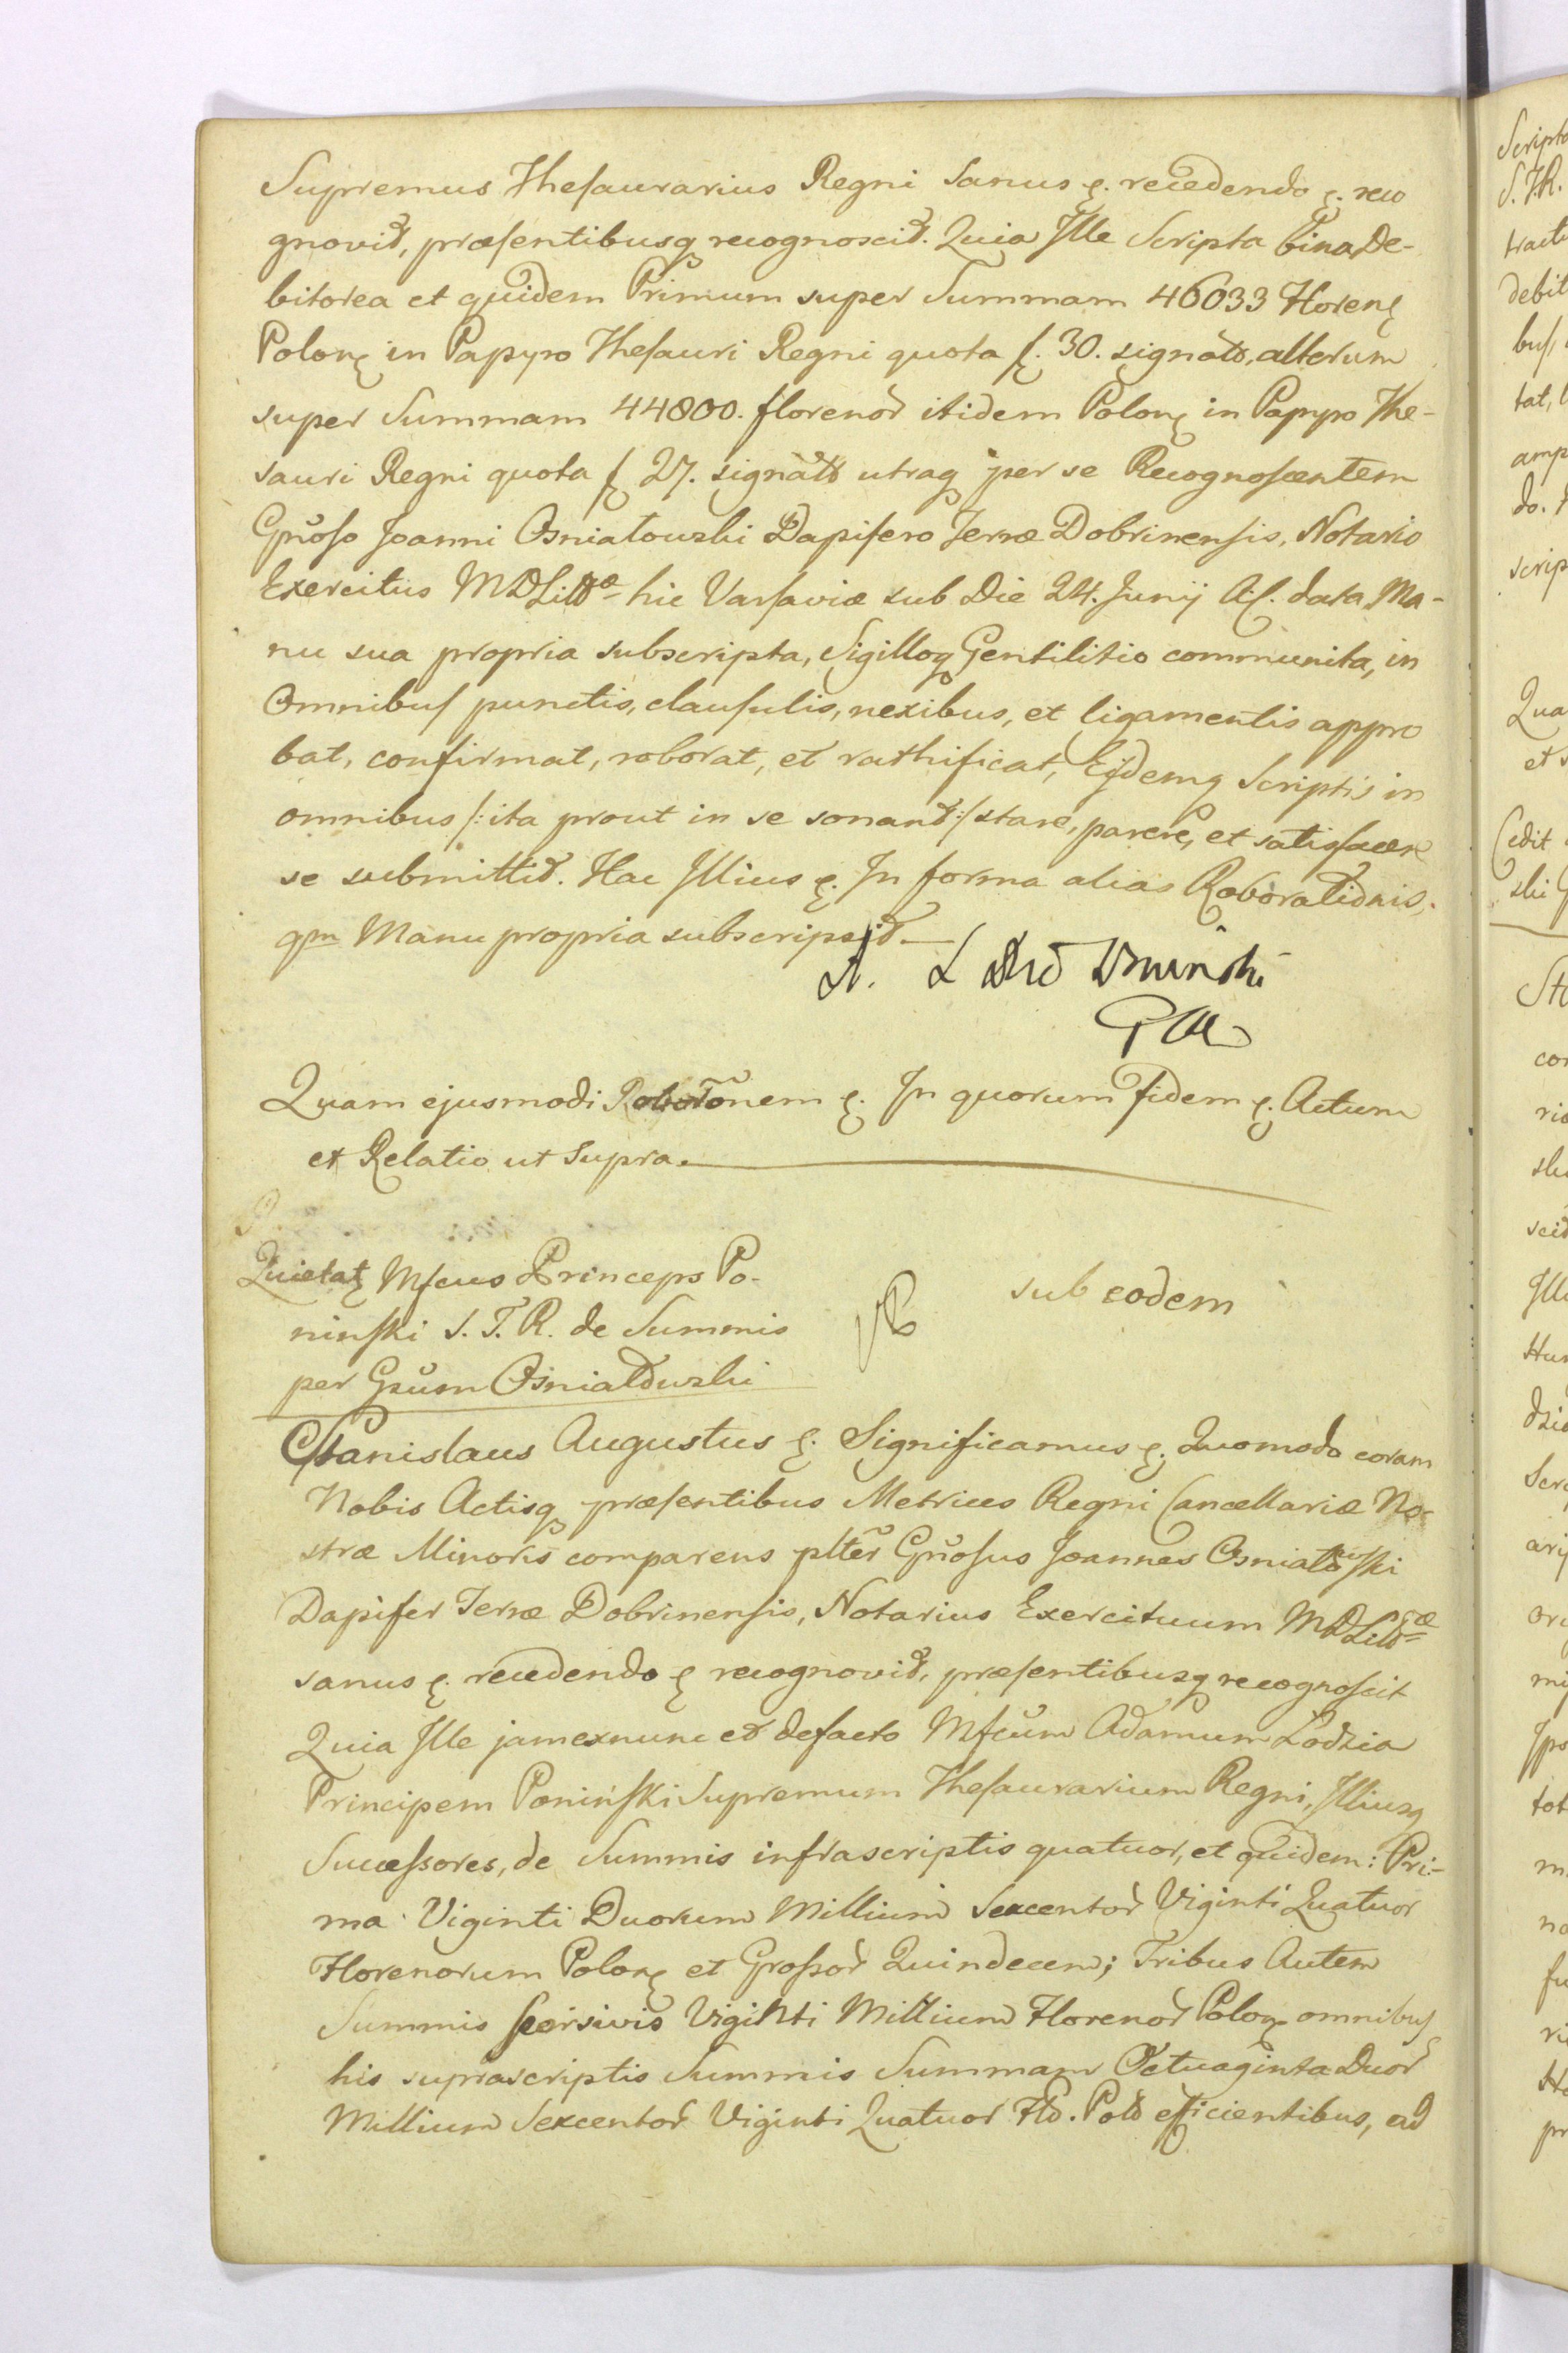 Supremus Thesaurarius Regni sanus ę. recedendo ę. reco
gnovit, præsentibusq recognoscit. Quia Ille Scripta bina De-
bitorea et quidem Primum super Summam 46033 Florenę
Polonę in Papyro Thesauri Regni quota f. 30. signato, alterum
super Summam 44800. florenor itidem Polonę in Papyro The-
sauri Regni quota f 27. signato utraq per se Recognoscentem
Gnoso Joanni Osniatowski Dapifero Terræ Dobrinensis, Notario
Exercitus MDLittæ hic Varsaviæ sub Die 24. Junij A.C. data Ma-
nu sua propria subscripta, Sigilloq Gentilitio communita, in
Omnibus punctis, clausulis, nexibus, et ligamentis appro
bat, confirmat, roborat, et rathificat, Ejsdemq Scriptis in
omnibus /: ita prout in se sonant :/ stare, parere, et satisfacere
se submittit. Hac Illius ę. In forma alias Roborationis,
qm Manu propria subscripsit.
Quam ejusmodi Roborationem ę. In quorum fidem ę. Actum
et Relatio ut supra.
Quietatę Mfcus Princeps Po-
ninski S. T. R. de Summis
per Gsum Osniatowski
sub eodem
Stanislaus Augustus ę. Significamus ę. Quomodo coram
Nobis Actisq præsentibus Metrices Regni Cancellariæ No-
stræ Minoris comparens plter Gnosus Joannes Osniatowski
Dapifer Terræ Dobrinensis, Notarius Exercituum MDLittæ
sanus ę. recedendo ę recognovit, præsentibusq recognoscit
Quia Ille jamexnunc et defacto Mfcum Adamum Łodzia
Principem Poniński Supremum Thesaurarium Regni, Illiusq
Successores, de Summis infrascriptis quatuor, et quidem: Pri-
ma Viginti Duorum Millium Sexcentor Viginti Quatuor
Florenorum Polonę et Grossor Quindecem; Tribus Autem
Summis seorsivis Viginti Millium Florenor Polonę omnibus
his suprascriptis Summis Summam Octuaginta Duor
Millium Sexcentor Viginti Quatuor Flo. Polo efficientibus, ad